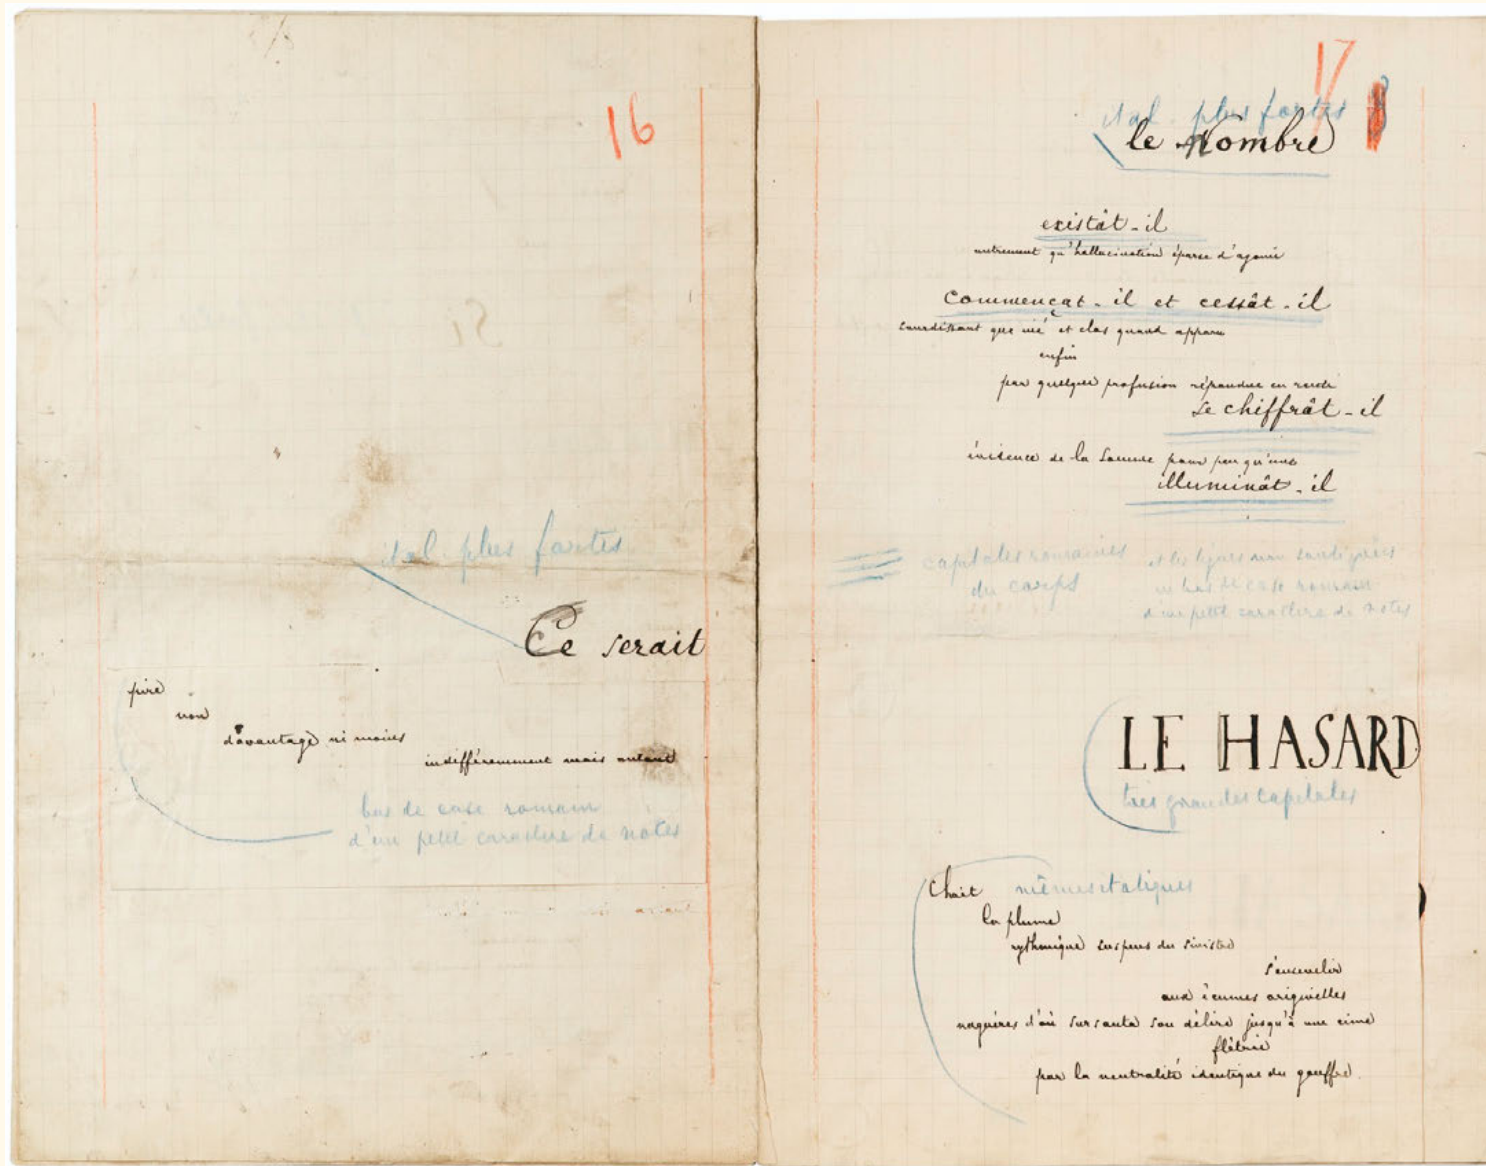 16
ital. plus fortes
Ce serait
pire
non
davantage ni moins
indifféremment mais autant
bas de casse romain
d'un petit caractère de notes
17
ital. plus fortes
le Nombre
existât-il
autrement qu'hallucination éparse d'agonie
commençât-il et cessât-il
sourdissant que nié et clos quand apparu
enfin
par quelque profusion répandue en rareté
se chiffrât-il
évidence de la somme pour peu qu'une
illuminât-il
capitales romaines
du corps
et les lignes non soulignées
en bas de casse romain
d'un petit caractère de notes
LE HASARD
très grandes capitales
Choit mêmes italiques
la plume
rythmique suspens du sinistre
s'ensevelir
aux écumes originelles
naguères d'où sursauta son délire jusqu'à une cime
flétrie
par la neutralité identique du gouffre